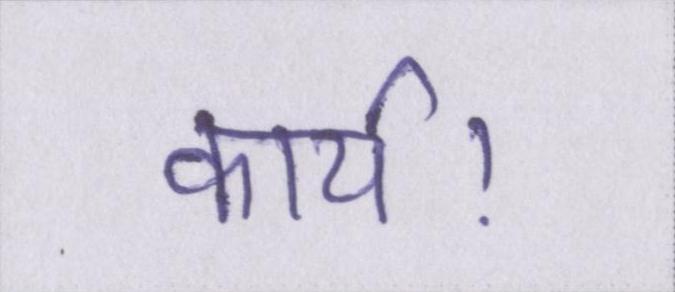 कार्य!